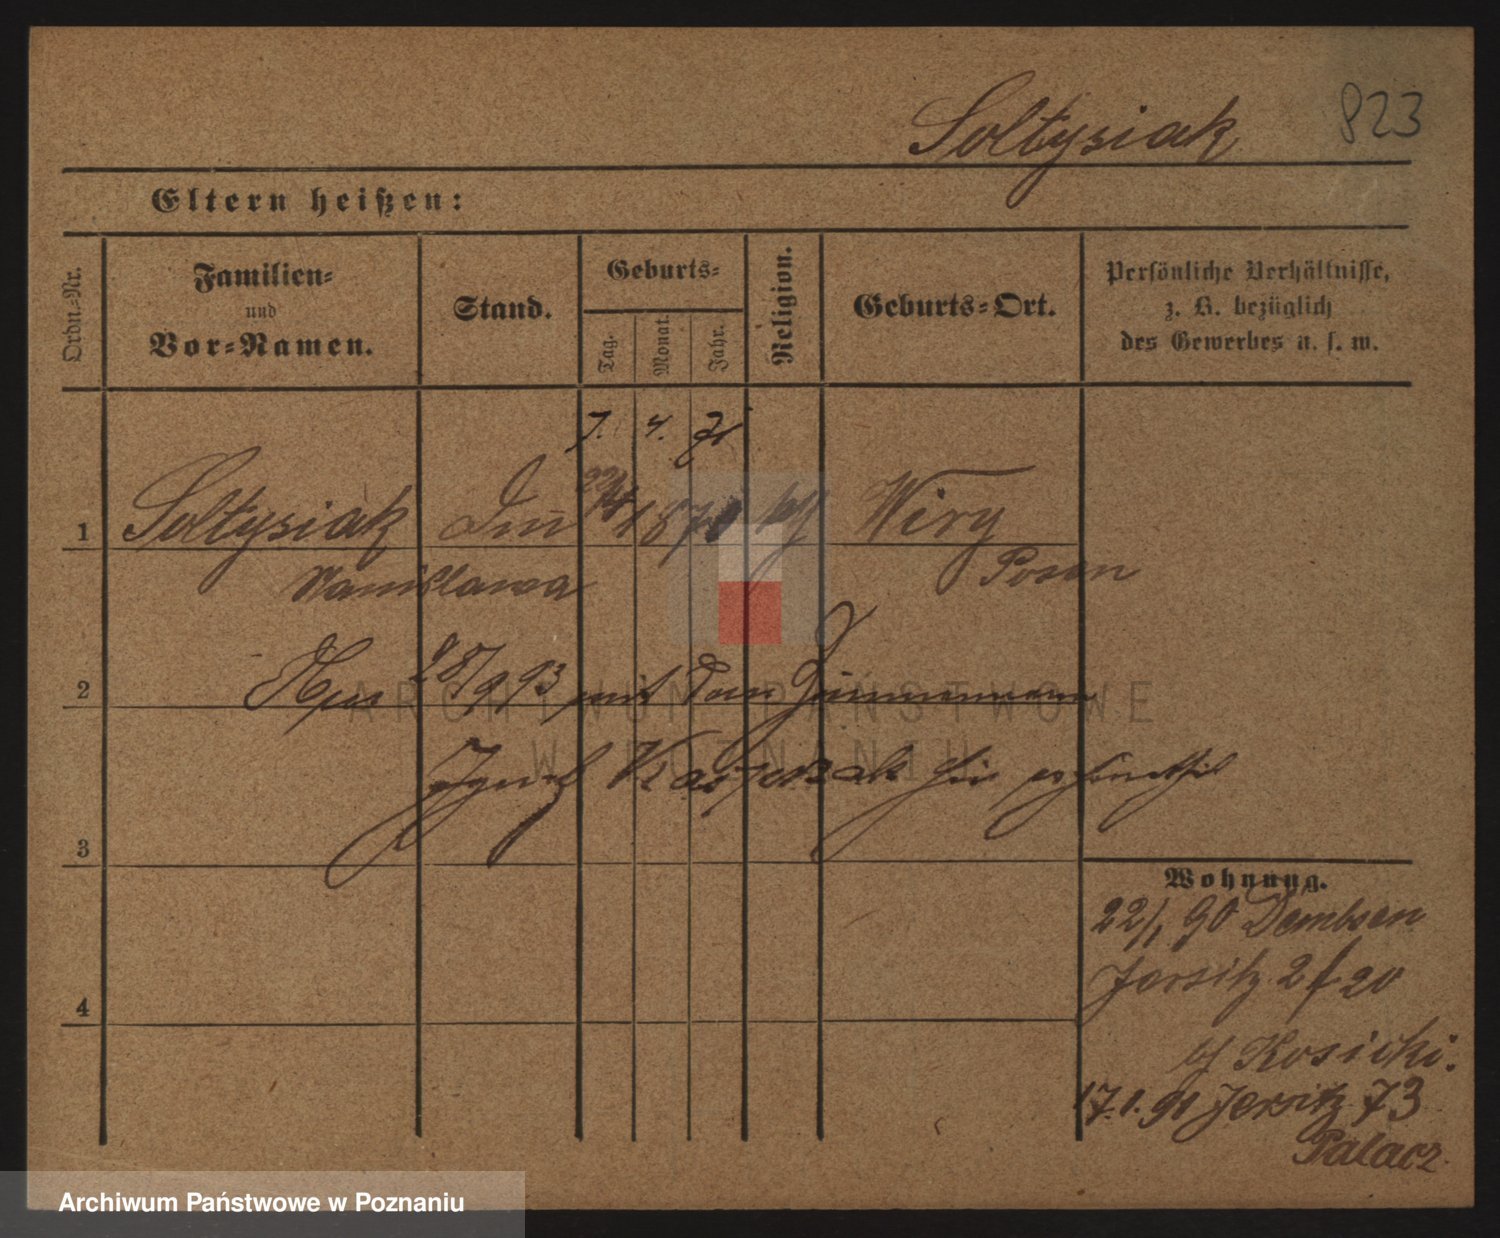 Soltysiak 823
Eltern heißen:
Ordn.-Nr.
Familien-
und
Vor-Namen.
Stand.
Geburts-
Tag.
Monat.
Jahr.
Religion.
Geburts-Ort.
Persönliche Verhältnisse,
z. B. bezüglich
des Gewerbes u. s. w.
7. 4. 71
1 Soltysiak 1870 Wiry
Stanislawa Posen
2 28/9 93 mit dem Zimmermann
Kasprzak
3
Wohnung.
22/1 90 Dembsen
Jersitz 20
4
b/ Kosicki.
17.1.91 Jersitz 73
Palacz
ARCHIWUM PAŃSTWOWE
W POZNANIU
Archiwum Państwowe w Poznaniu